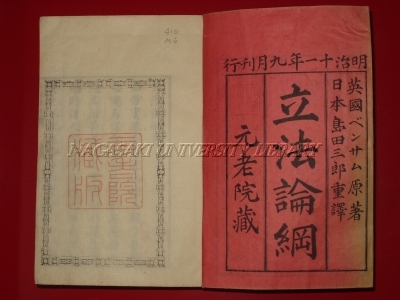 明治十一年九月刊行
英國ベンサム原著
日本島田三郎重譯
立法論綱
元老院藏
元老院
藏版
NAGASAKI UNIVERSITY LIBRARY